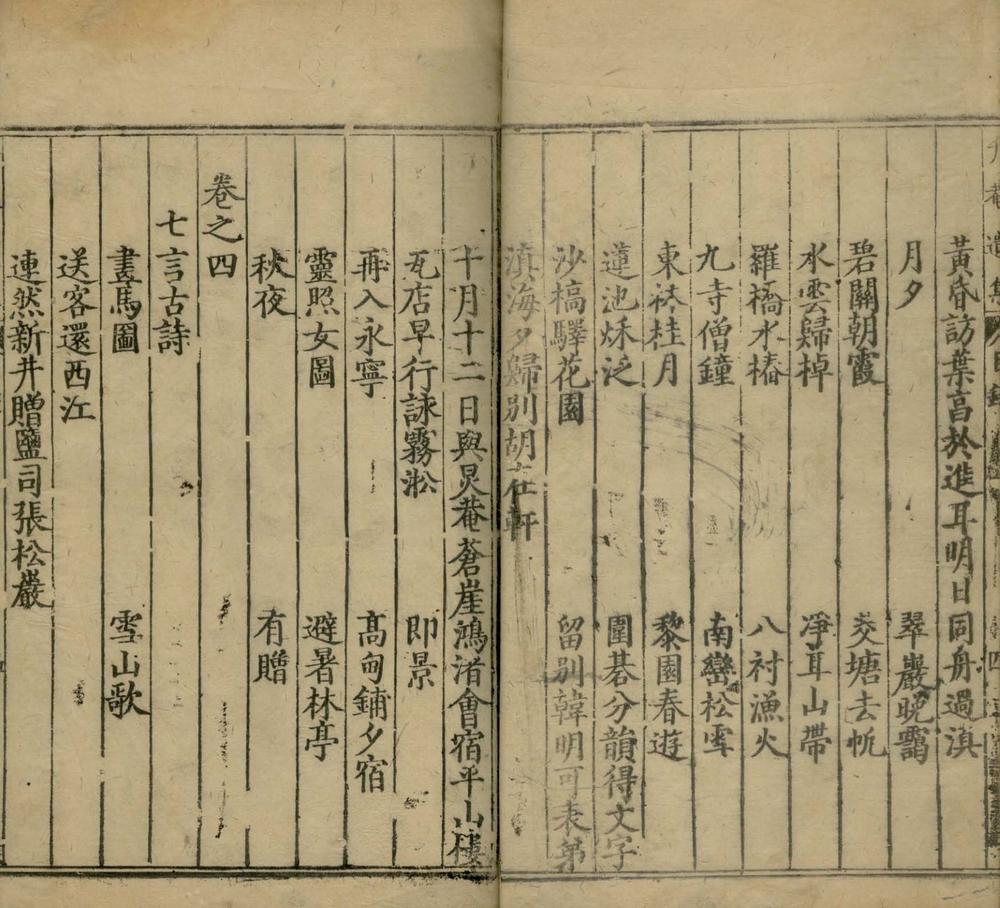 黃昏訪葉髙於進耳明日同舟過滇
月夕　翠巖晚靄
碧關朝霞　塘去帆
水雲歸棹　凈耳山帶
羅橋水樁　八村漁火
九寺僧鐘　南巒松雪
東林桂月　黎園春遊
蓮池秌泛　圍碁分韻得文字
沙槁驛花園　留別韓明可表弟
滇海夕歸別胡在軒
十月十二日與炅菴蒼崖鴻渚會宿平山樓
瓦店早行詠霧淞　即景
再入永寧　髙甸鋪夕宿
靈照女圖　避暑林亭
秋夜　有贈
卷之四
七言古詩
畫馬圖　雪山歌
送客還西江
連然新井贈鹽司張松巖